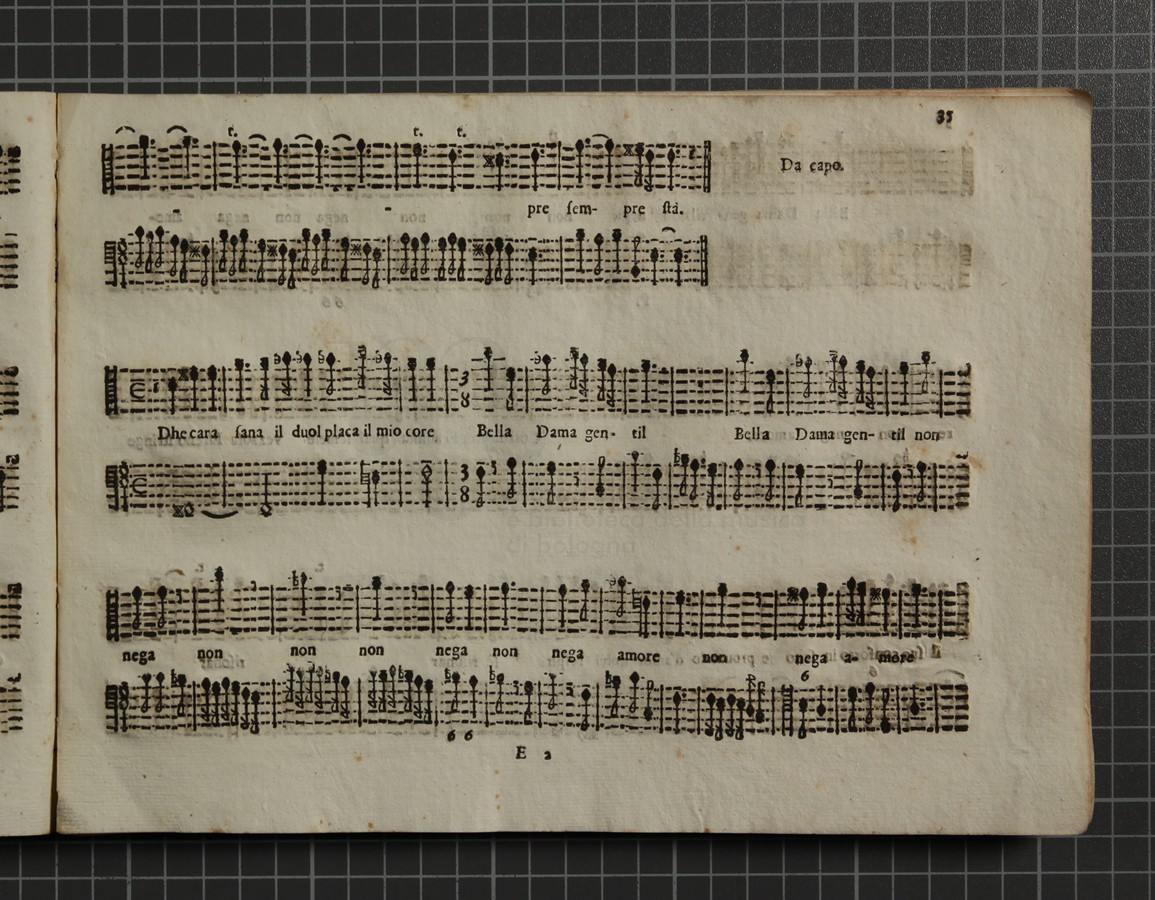 35
t. t. t.
Da capo.
pre ſem- pre ſtà.
Dhe cara ſana il duol placa il mio core Bella Dama gen- til Bella Dama gen- til non
3 8
3 8
nega non non non nega non nega amore non nega a- more
6
6 6
E 2